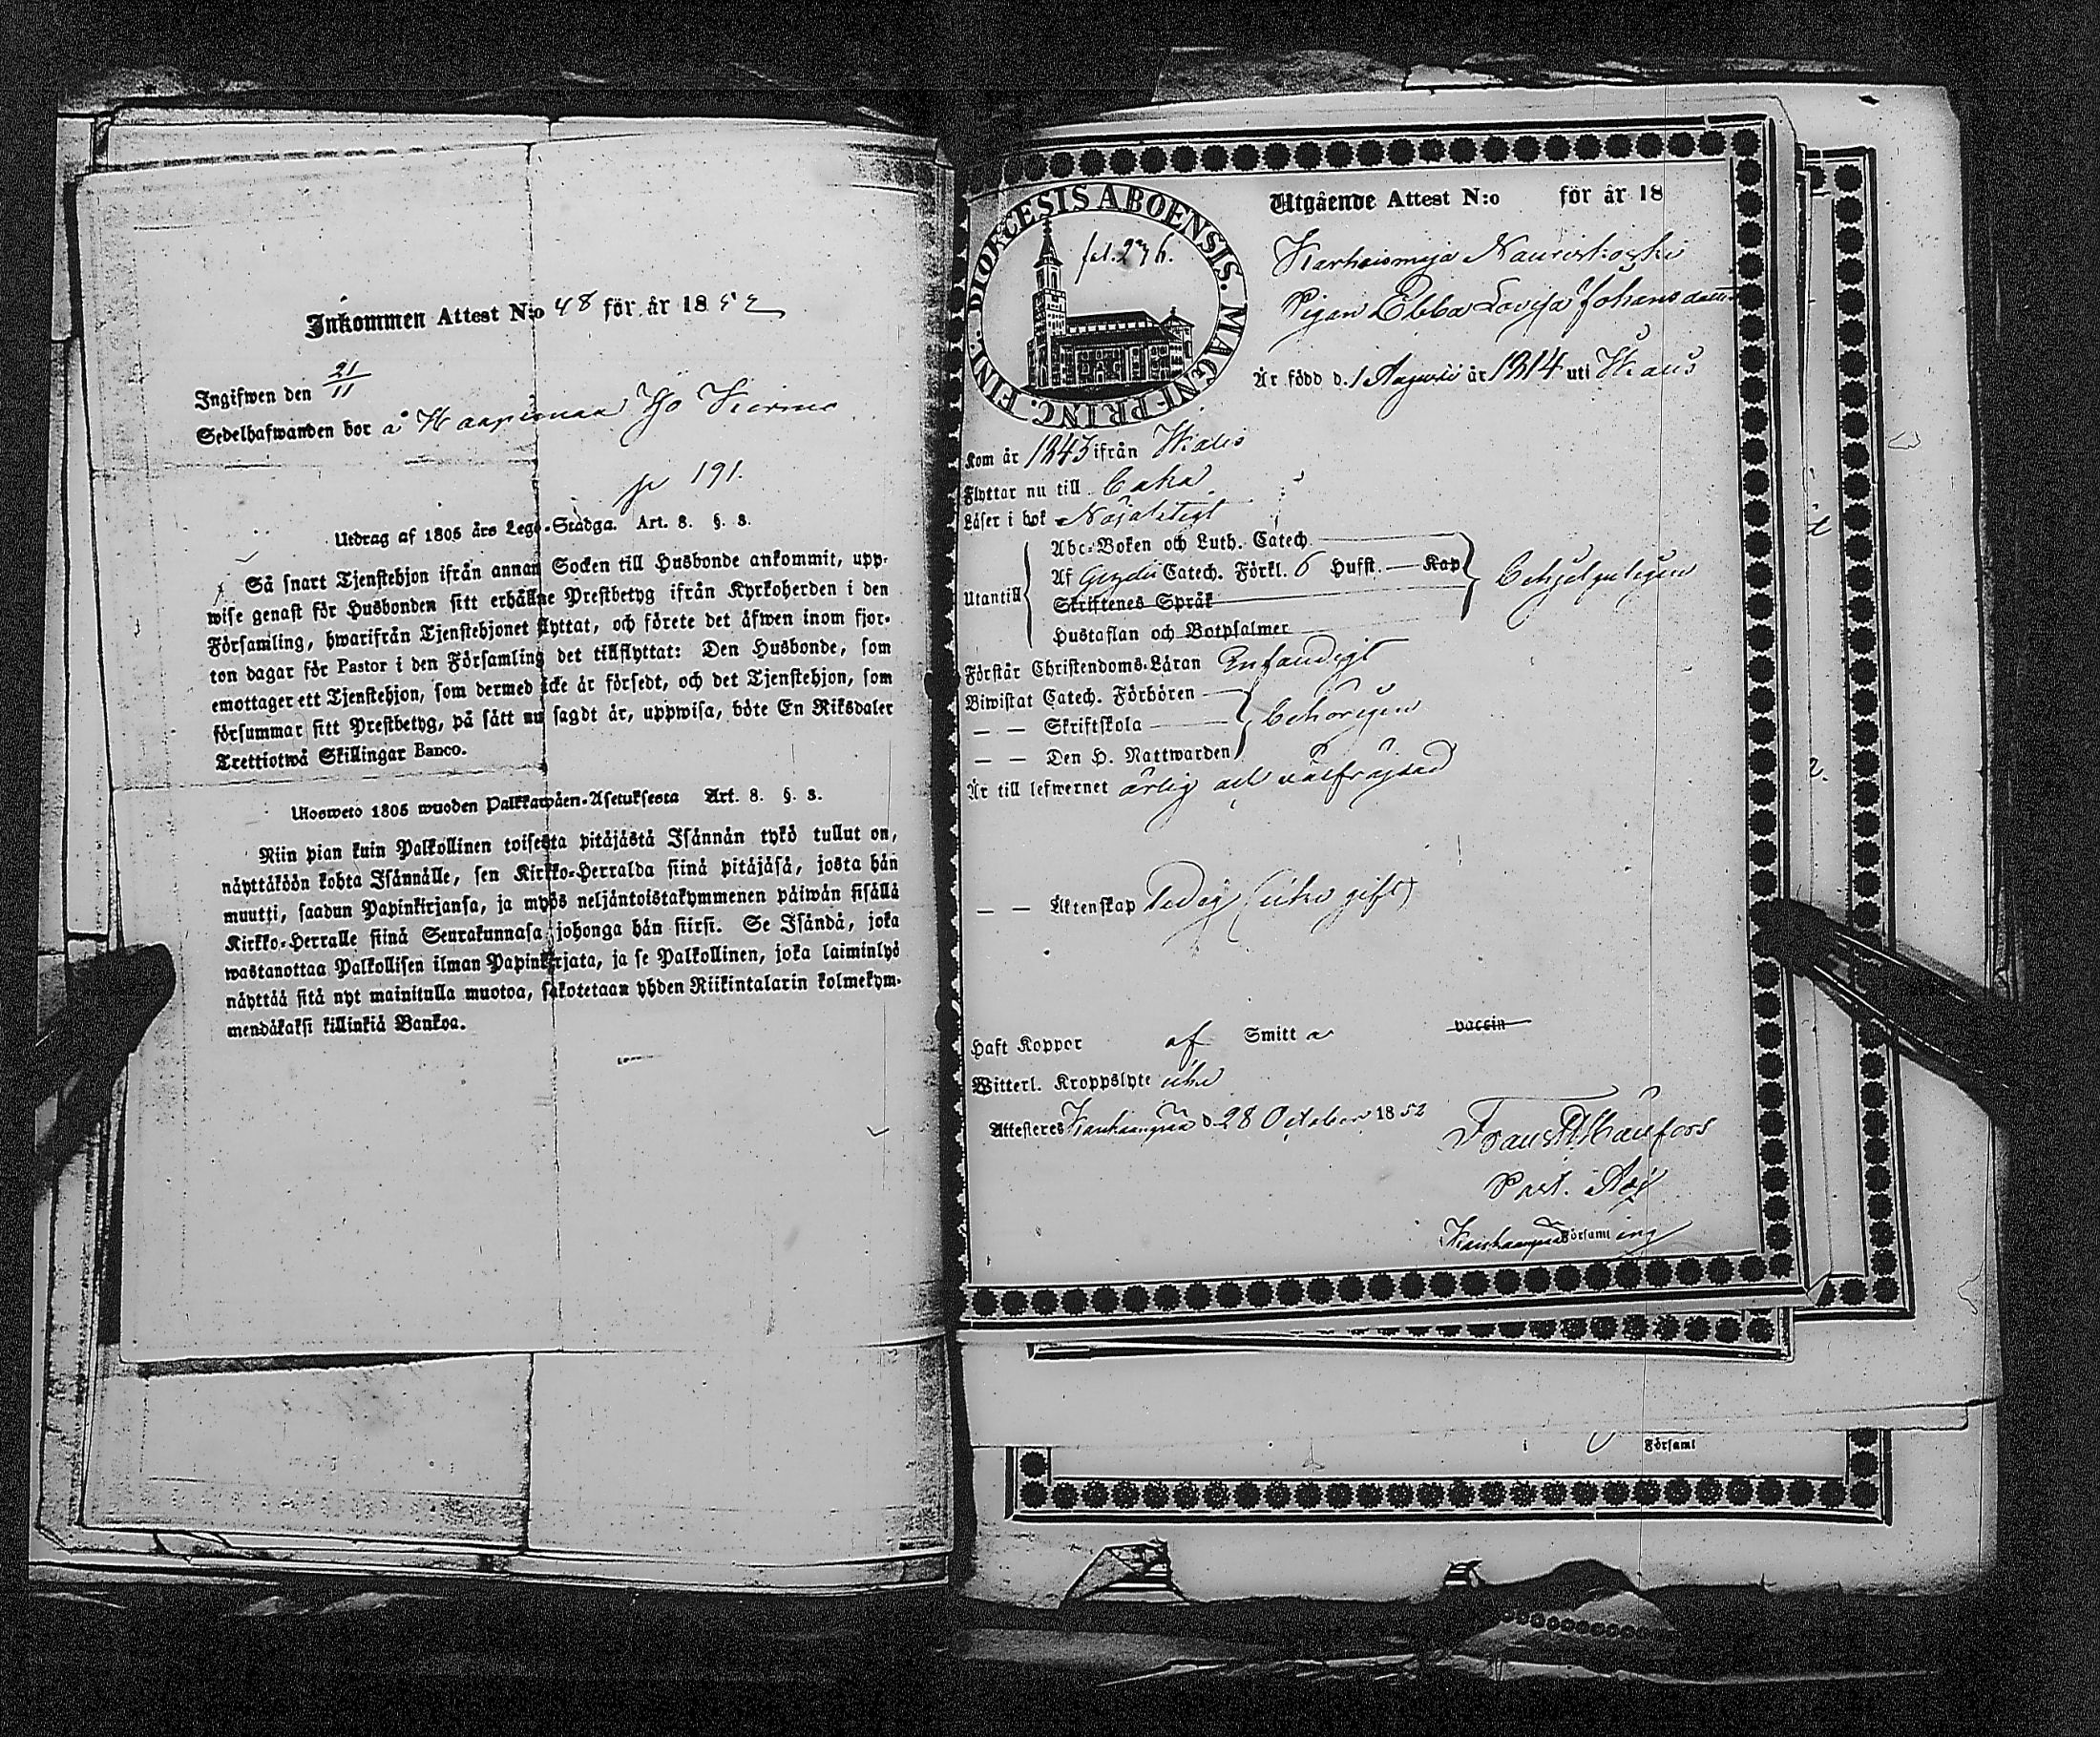 Inkommen Attest N:o 48 för år 1852
Ingifwen den 21/11
Sedelhafwanden bor å
p 191.
Utdrag af 1805 års Lego-Stadga. Art. 8. §. 3.
Så snart Tjenstehjon ifrån annan Socken till Husbonde ankommit, upp-
wise genast för Husbonden sitt erhållne Prestbetyg ifrån Kyrkoherden i den
Församling, hwarifrån Tjenstehjonet flyttat, och förete det äfwen inom fjor-
ton dagar för Pastor i den Församling det tillflyttat: Den Husbonde, som
emottager ett Tjenstehjon, som dermed icke är försedt, och det Tjenstehjon, som
försummar sitt Prestbetyg, på sätt nu sagdt är, uppwisa, böte En Riksdaler
Trettiotwå Skillingar Banco.
Ulosweto 1805 wuoden Palkkawäen-Asetuksesta Art. 8. §. 3.
Niin pian kuin Palkollinen toisesta pitäjästä Isännän tykö tullut on,
näyttäköön kohta Isännälle, sen Kirkko-Herralda siinä pitäjäsä, josta hän
muutti, saadun Papinkirjansa, ja myös neljäntoistakymmenen päiwän sisällä
Kirkko-Herralle siinä Seurakunnasa johonga hän siirsi. Se Isändä, joka
wastanottaa Palkollisen ilman Papinkirjata, ja se Palkollinen, joka laiminlyö
näyttää sitä nyt mainitulla muotoa, sakotetaan yhden Riikintalarin kolmekym-
mendäkaksi killinkiä Bankoa.
DIOECESIS ABOENSIS. MAGNI PRINC. FINL.
fol. 276.
Utgående Attest N:o för år 18
Karhoismaja Nauriskoski
Pigan Ebba Lovisa Johansdotter
Är född d. 1 Augusti år 1814 uti
Kom år 1843 ifrån
Flyttar nu till
Läser i bok Nöjaktigt
Utantill
Abc-Boken och Luth. Catech.
Af Gezelii Catech. Förkl. 6 Hufst. — Kap
Skriftenes Språk
Hustaflan och Botpsalmer
Behjelpeligen
Förstår Christendoms-Läran Enfaldigt
Biwistat Catech. Förhören
— — Skriftskola
— — Den H. Nattwarden
behörigen
Är till lefwernet ärlig och välfräjdad
— — Äktenskap Ledig (icke gift)
Haft Koppor af Smitta vaccin
Witterl. Kroppslyte icke
Attesteras Kankaanpää d. 28 October 1852
Past. Adj.
i Kankaanpää Församling
i Församl